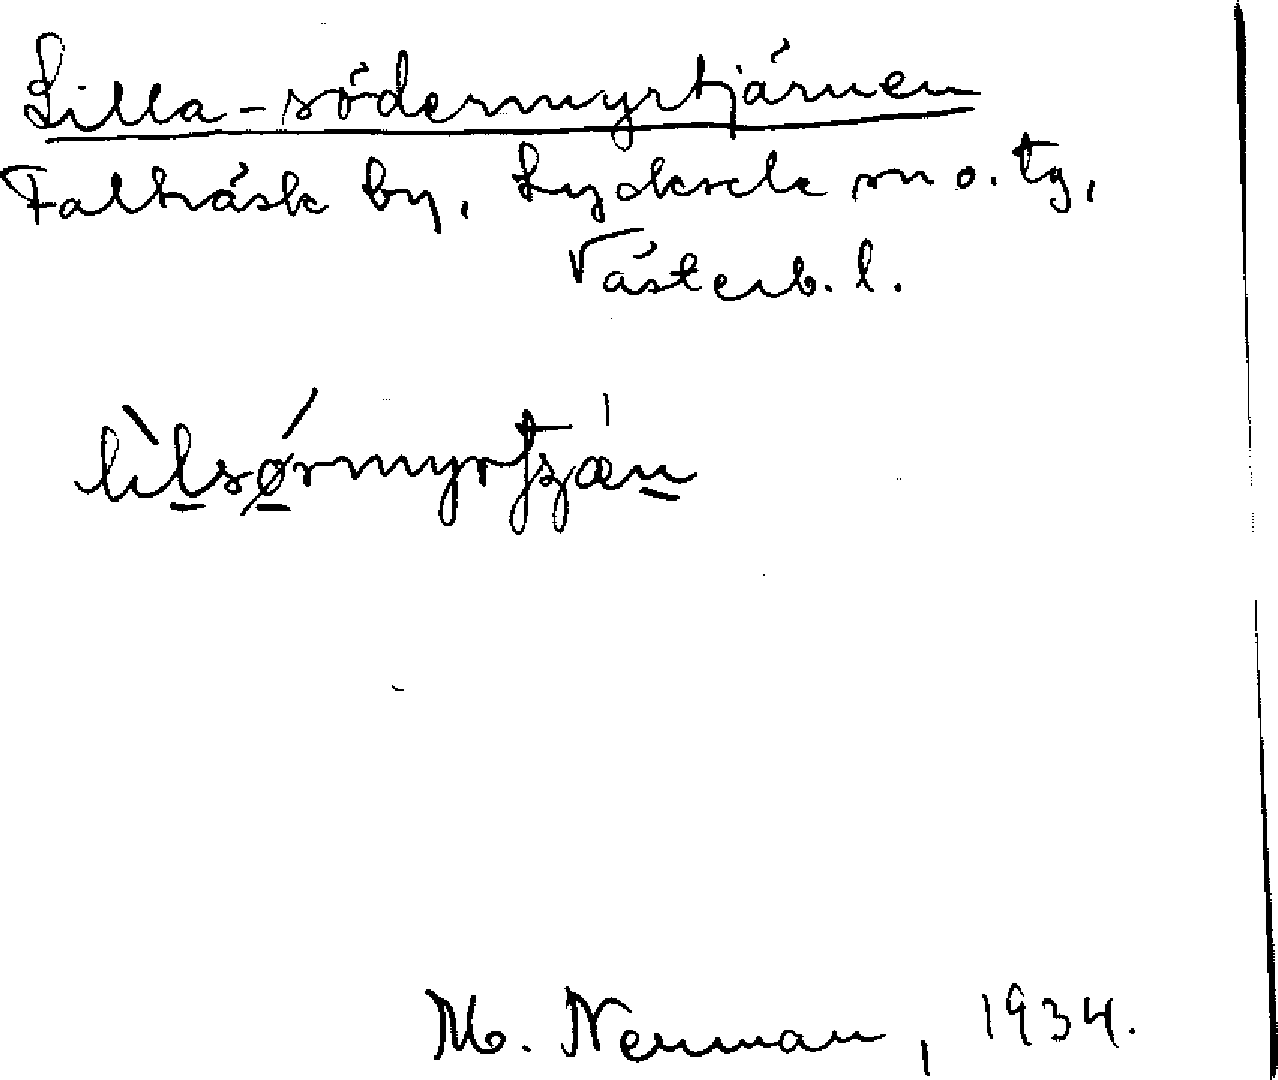 Lilla-södermyrtjärnen
Falträsk by, Lycksele sn o. tg,
Västerb. l.
lìlsǿrmyrtȷʒæn
M. Nerman, 1934.